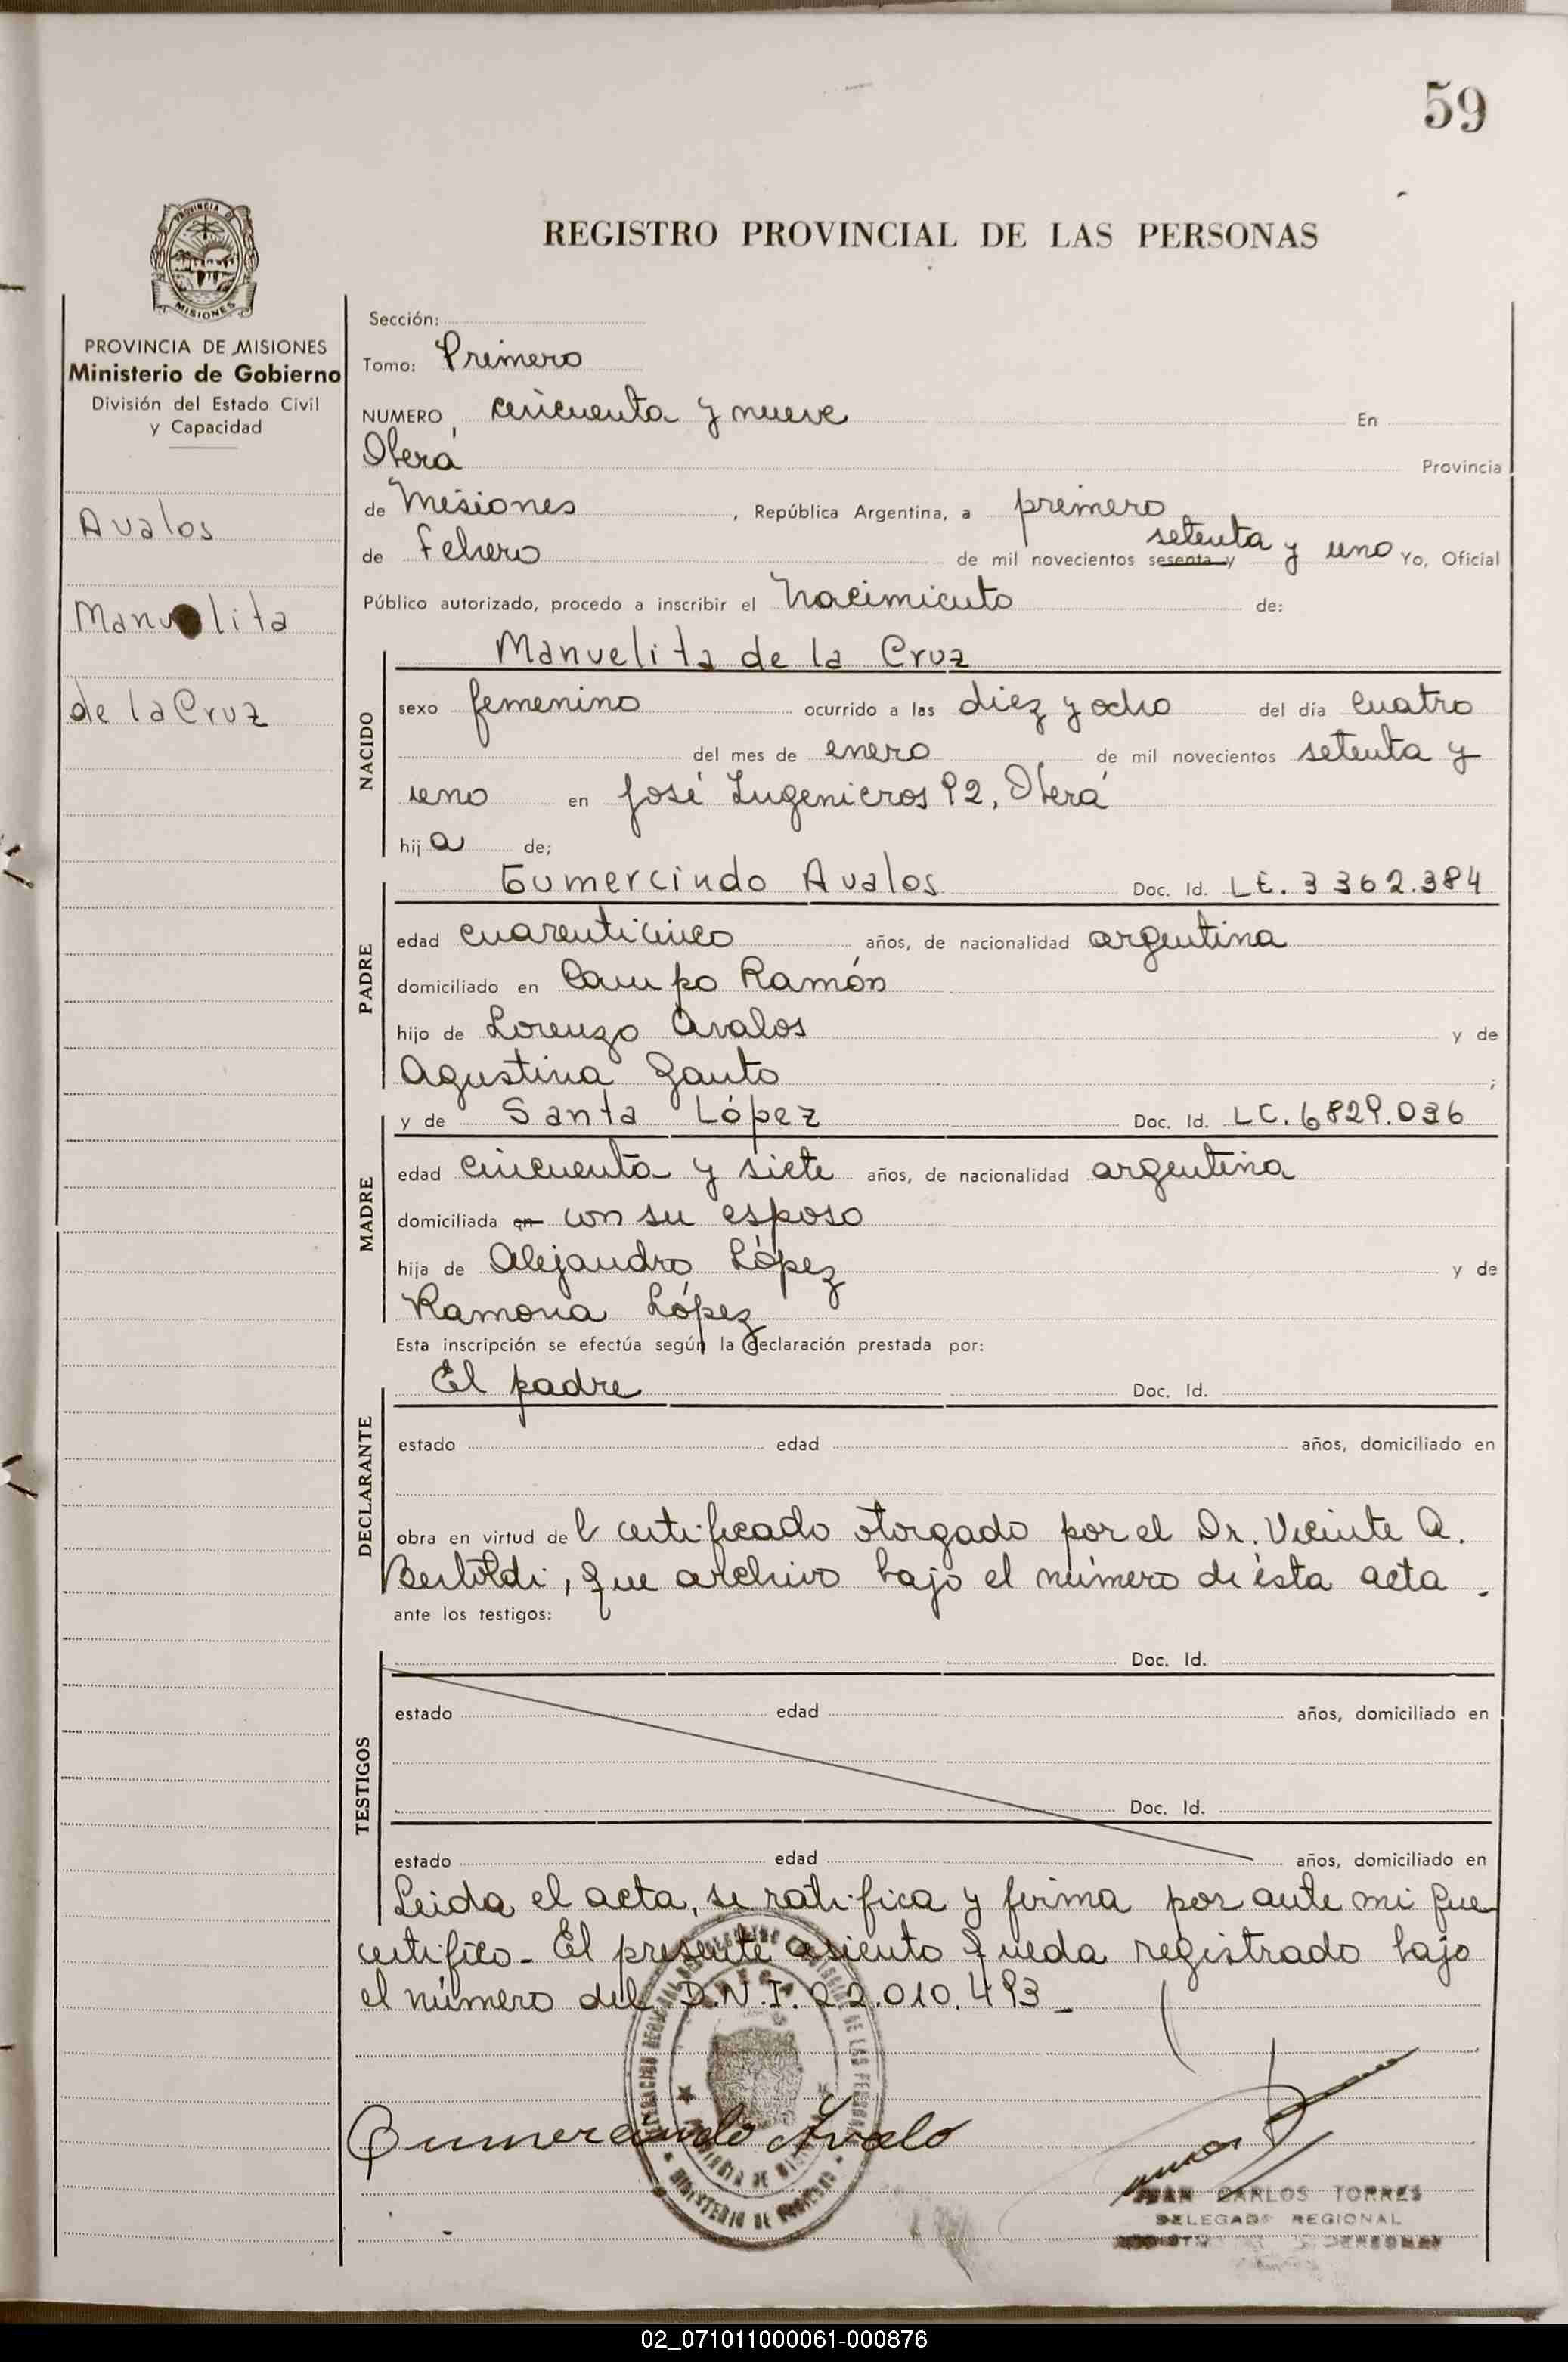 59
REGISTRO PROVINCIAL DE LAS PERSONAS
PROVINCIA DE MISIONES
PROVINCIA DE MISIONES
Ministerio de Gobierno
División del Estado Civil
y Capacidad
Avalos
Manuelita
de la Cruz
Sección:
Tomo: Primero
NUMERO cincuenta y nueve En
Oberá Provincia
de Misiones, República Argentina, a primero
setenta y uno
de Febrero de mil novecientos sesenta y Yo, Oficial
Público autorizado, procedo a inscribir el Nacimiento de:
NACIDO
Manuelita de la Cruz
sexo femenino ocurrido a las diez y ocho del día cuatro
del mes de enero de mil novecientos setenta y
uno en José Ingenieros 92, Oberá
hija de;
PADRE
Gumercindo Avalos Doc. Id. LE. 3362.384
edad cuarenticinco años, de nacionalidad argentina
domiciliado en Campo Ramón
hijo de Lorenzo Avalos y de
Agustina Gauto ;
MADRE
y de Santa López Doc. Id. LC. 6829.036
edad cincuenta y siete años, de nacionalidad argentina
domiciliada en con su esposo
hija de Alejandro López y de
Ramona López
Esta inscripción se efectúa según la declaración prestada por:
DECLARANTE
El padre Doc. Id.
estado edad años, domiciliado en
obra en virtud del certificado otorgado por el Dr. Vicinte A.
Bertoldi, que archivo bajo el número de ésta acta.
ante los testigos:
TESTIGOS
Doc. Id.
estado edad años, domiciliado en
Doc. Id.
estado edad años, domiciliado en
Leida el acta, se ratifica y firma por ante mi que
certifico- El presente asiento queda registrado bajo
el número del D.N.I. 22.010.493-
Gumercindo Avalo
JUAN CARLOS TORRES
DELEGADO REGIONAL
MINISTERIO DE GOBIERNO
02_071011000061-000876